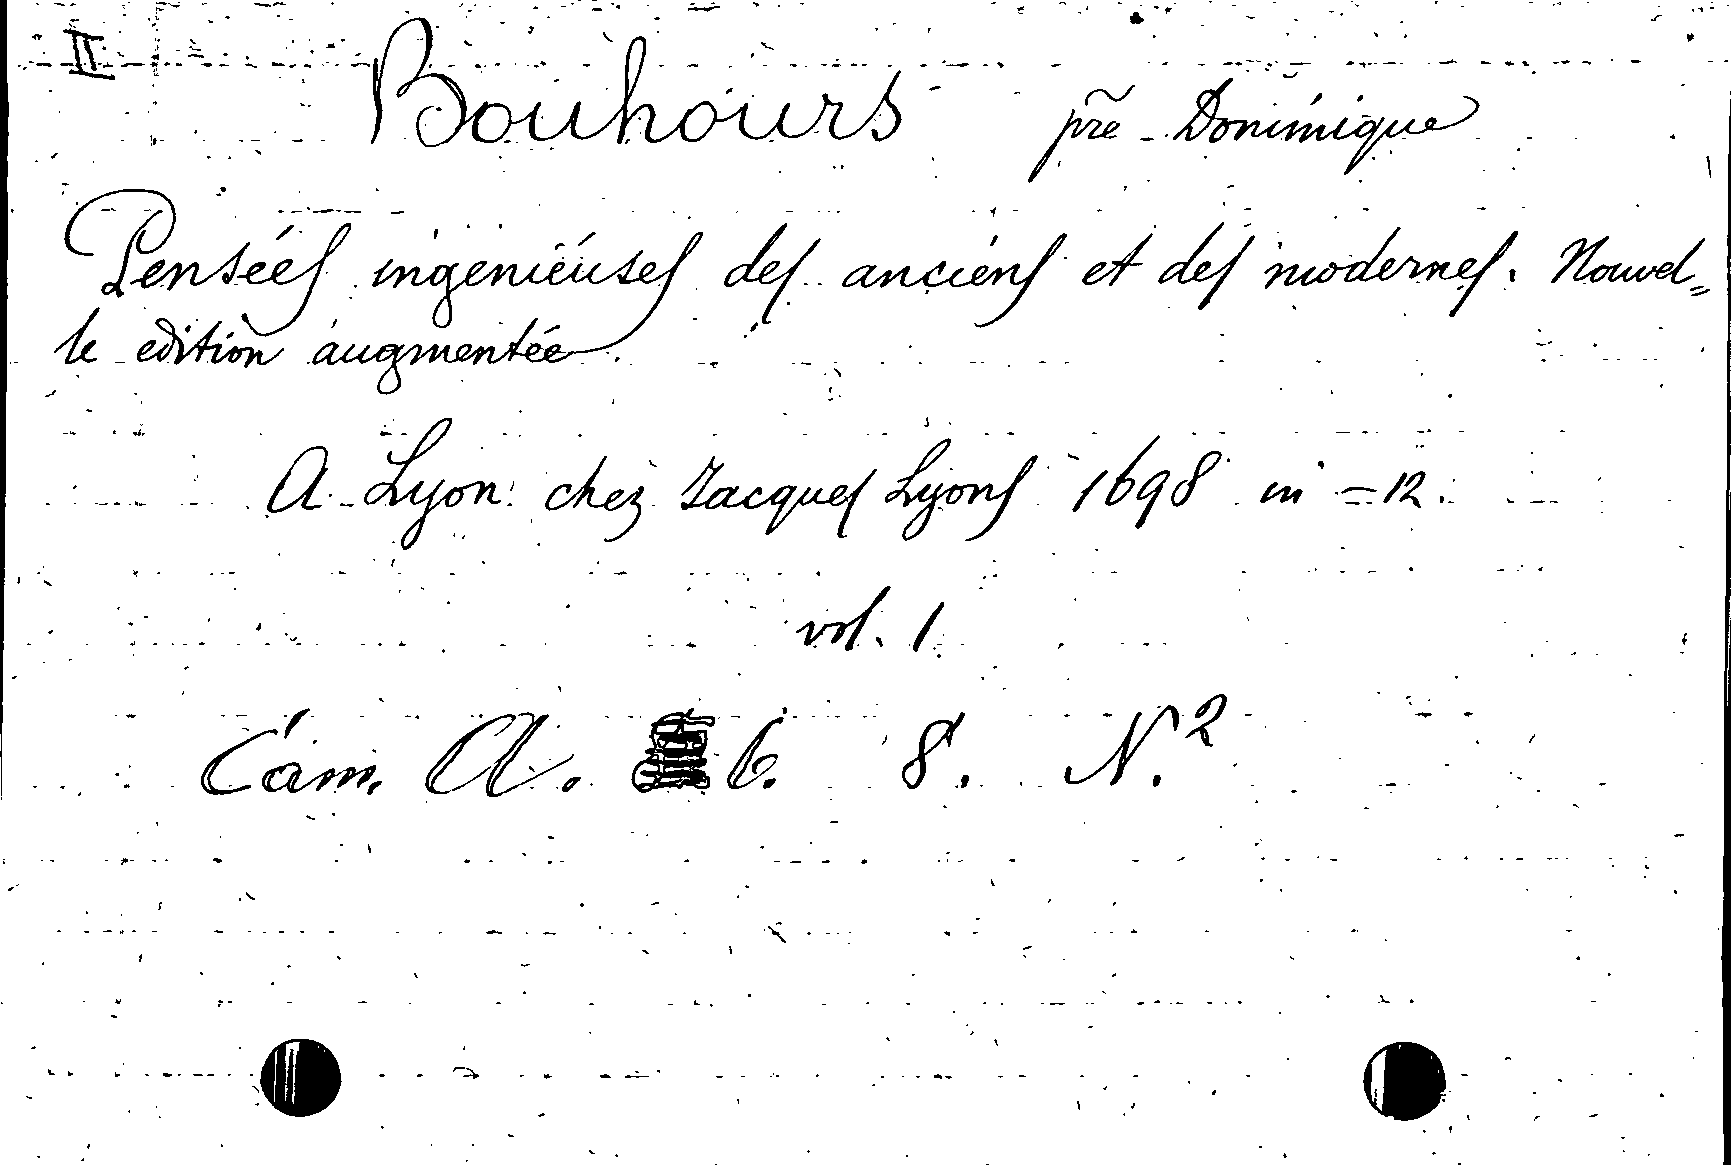 II
Bouhours prē Dominique
Penséés ingenieuses des anciens et des modernes. Nouvel=
le edition augmentée.
A Lyon chez Jacques Lyons 1698 in =12.
vol. 1
Cam. A. 6. 8. N.2